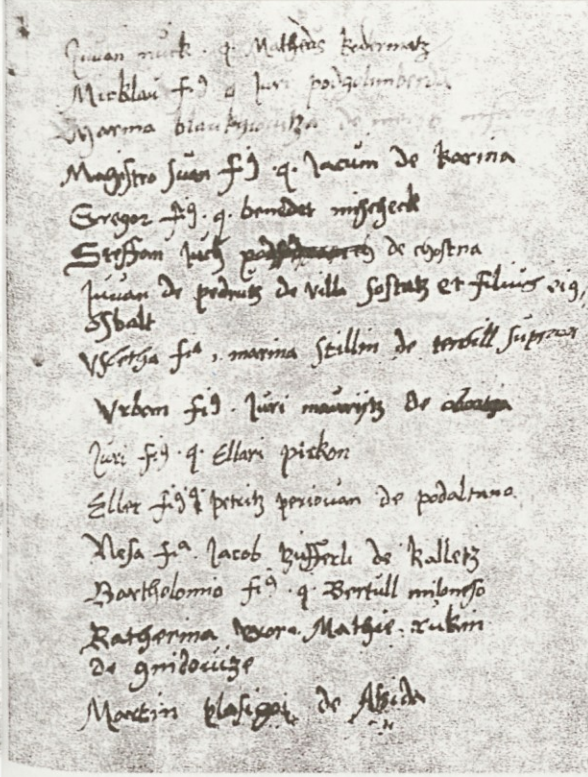 Juuan ruck . q. Matheus kodermatz
Micklau fi9 q Juri podgolimberda
Marina blankniouitza de
Magistro Juan fi9 . q. Jacum de karina
Gregor fi9 . q. benedet mischeck
Steffan Juch de chostna
Juuan de pedrutz de villa sostatz et filius ei9,
Osbalt
Vschetha fia , marina stillin de terbill
Vrban fi9 . Juri maurijtz de
Juri fi9 . q. Ellari pirkon
Eller fi9 q petritz periouan de podaltano
Nesa fia . Jacob zufferli de kalletz
Bartholomio fi9 . q. Bertull miloneso
Katherina vxor . Mathie . rukin
de gnidouize
Martin klasigoi de Azida